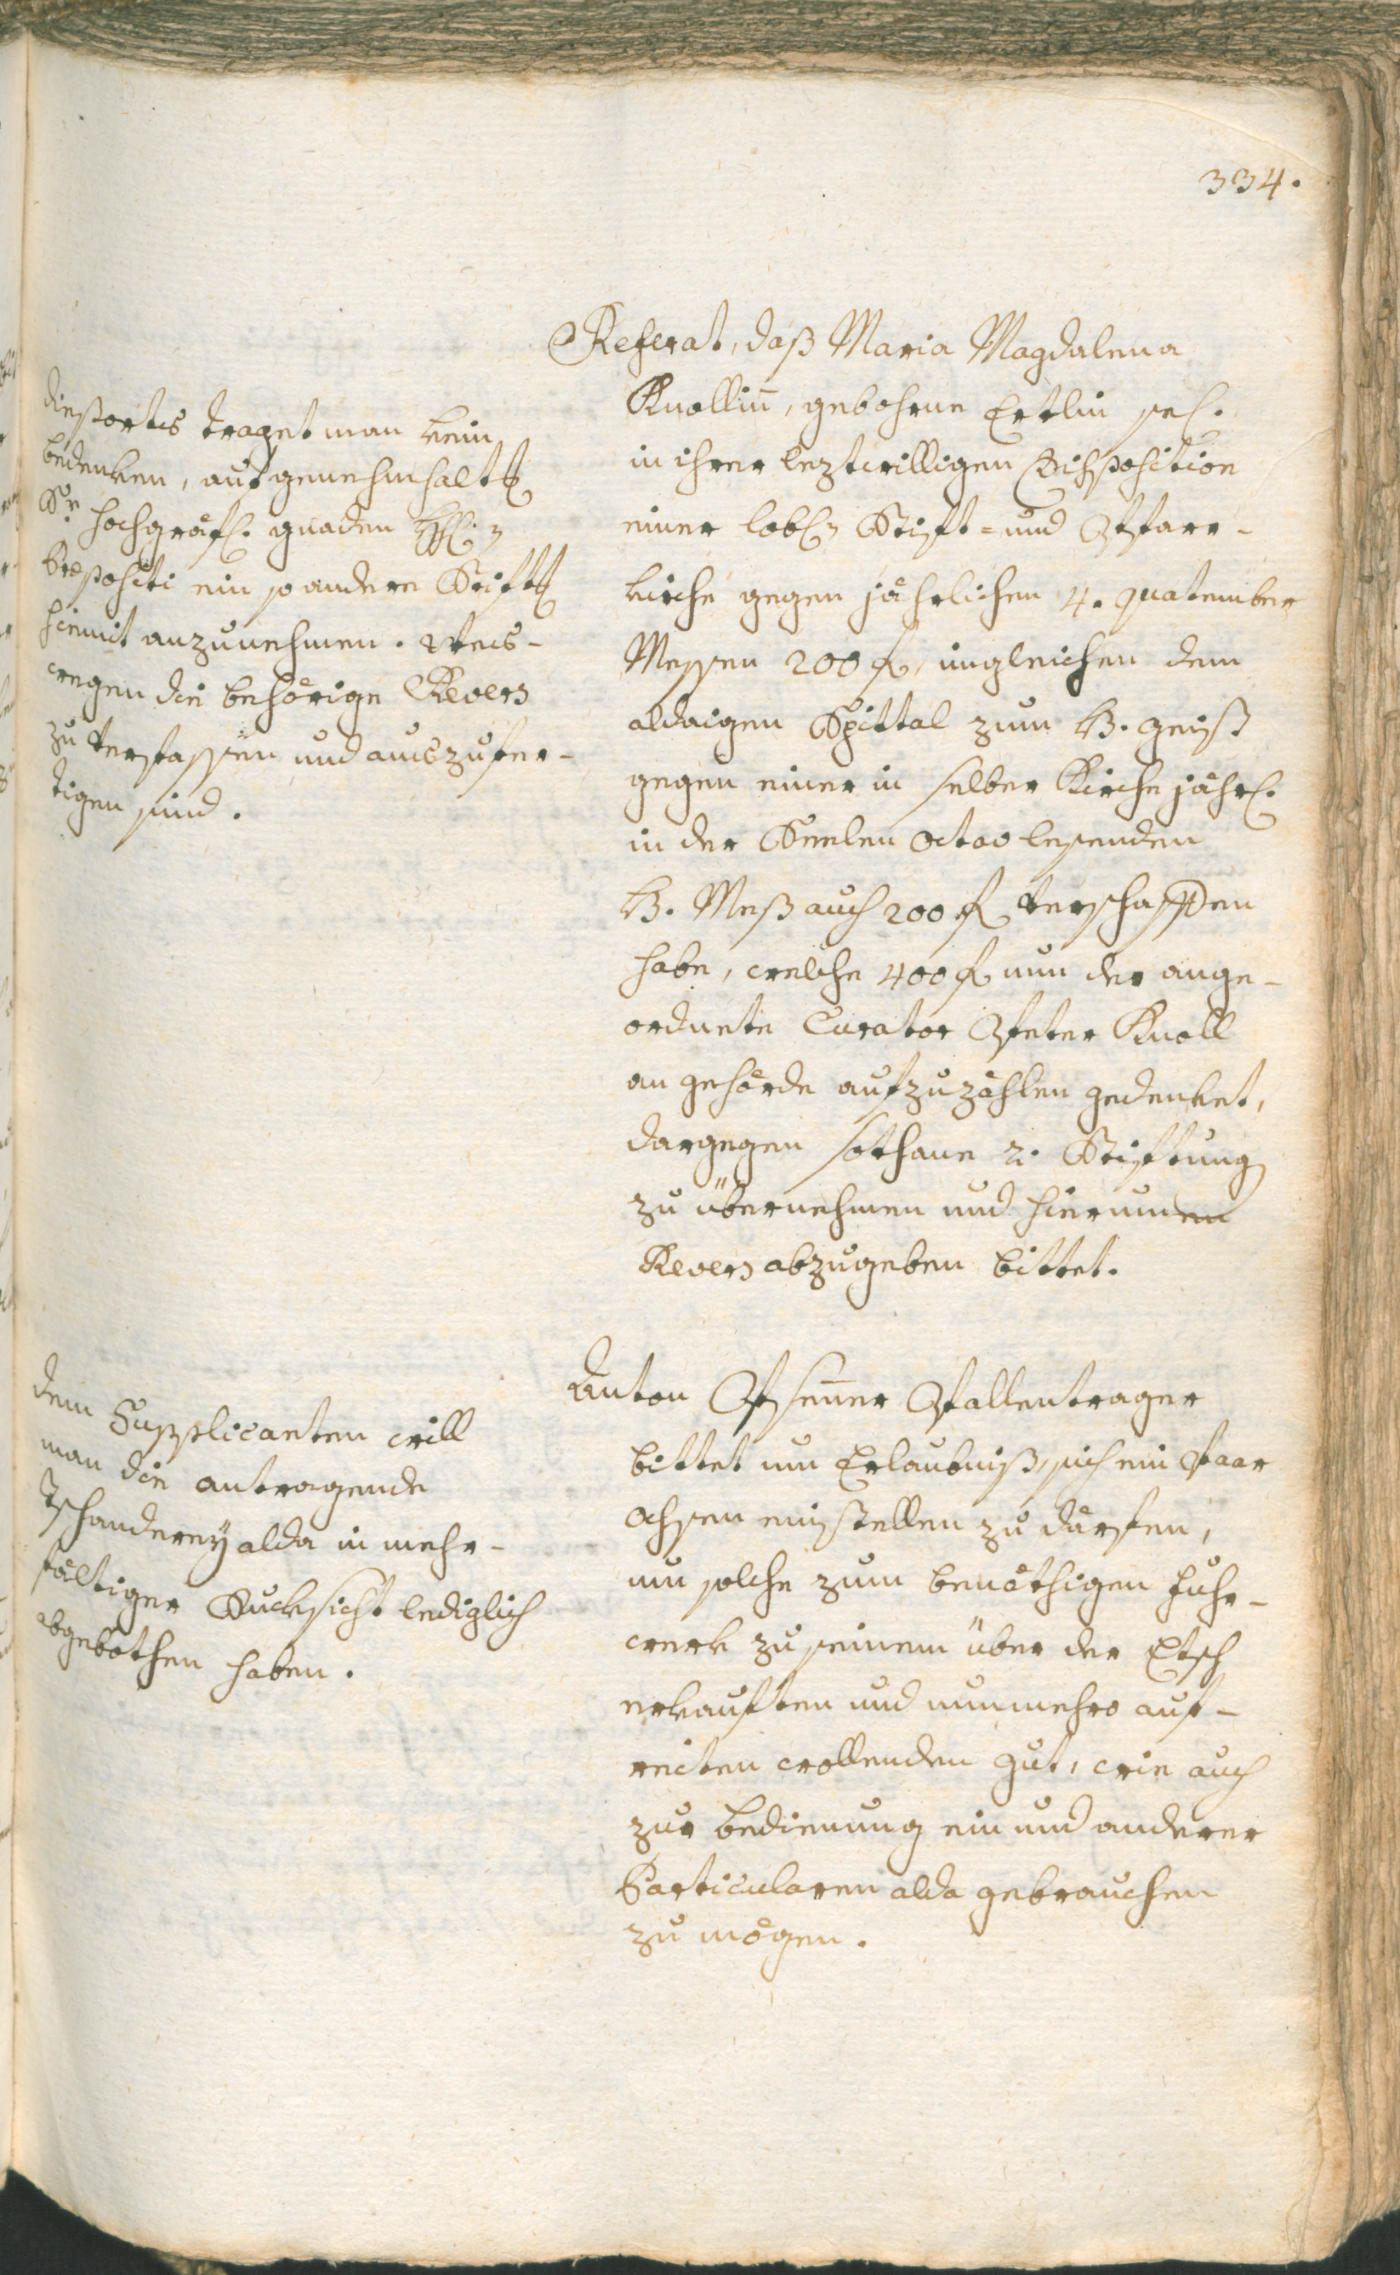 334.
Referat, daß Maria Magdalena
Knollin̄, gebohrne Ertlin sel.
in ihrer leztwilligen Disposition
einer lobl. Stift- und Pfarr-
kirche gegen jährlichen 4. quatember
Messen 200 f, ingleichen dem
aldaigen Spittal zum H. Geist
gegen einer in selber Kirche jährl.
in der Seelen octav lesenden
H. Meß auch 200 f verschaffen
habe, welche 400 f nun der ange-
ordnete Curator Peter Knoll
an gehörde aufzuzählen gedenket,
dargegen sothane 2. Stiftung
zu übernehmen und hierumen
Revers abzugeben bittet.
diesorts traget man kein
bedenken, auf genehmhalt
Sr hochgräfl. gnaden H:
Praepositi ein so andere Stift
hiemit anzunehmen. Wes-
wegen die behörige Revers
zu verfassen und auszufer-
tigen sind.
Anton Pfenner Pallentrager
bittet um Erlaubniß, sich ein Paar
Ochsen einstellen zu därfen,
um solche zum benöthigen fuhr-
werk zu seinem über der Etsch
erkauften und nunmehro auf-
reiten wollenden gut, wie auch
zur bedienung ein und anderer
Particularen alda gebrauchen
zu mögen.
dem Supplicanten will
man die antragende
Tschanderey alda in mehr-
fältiger Rucksicht lediglich
abgebothen haben.